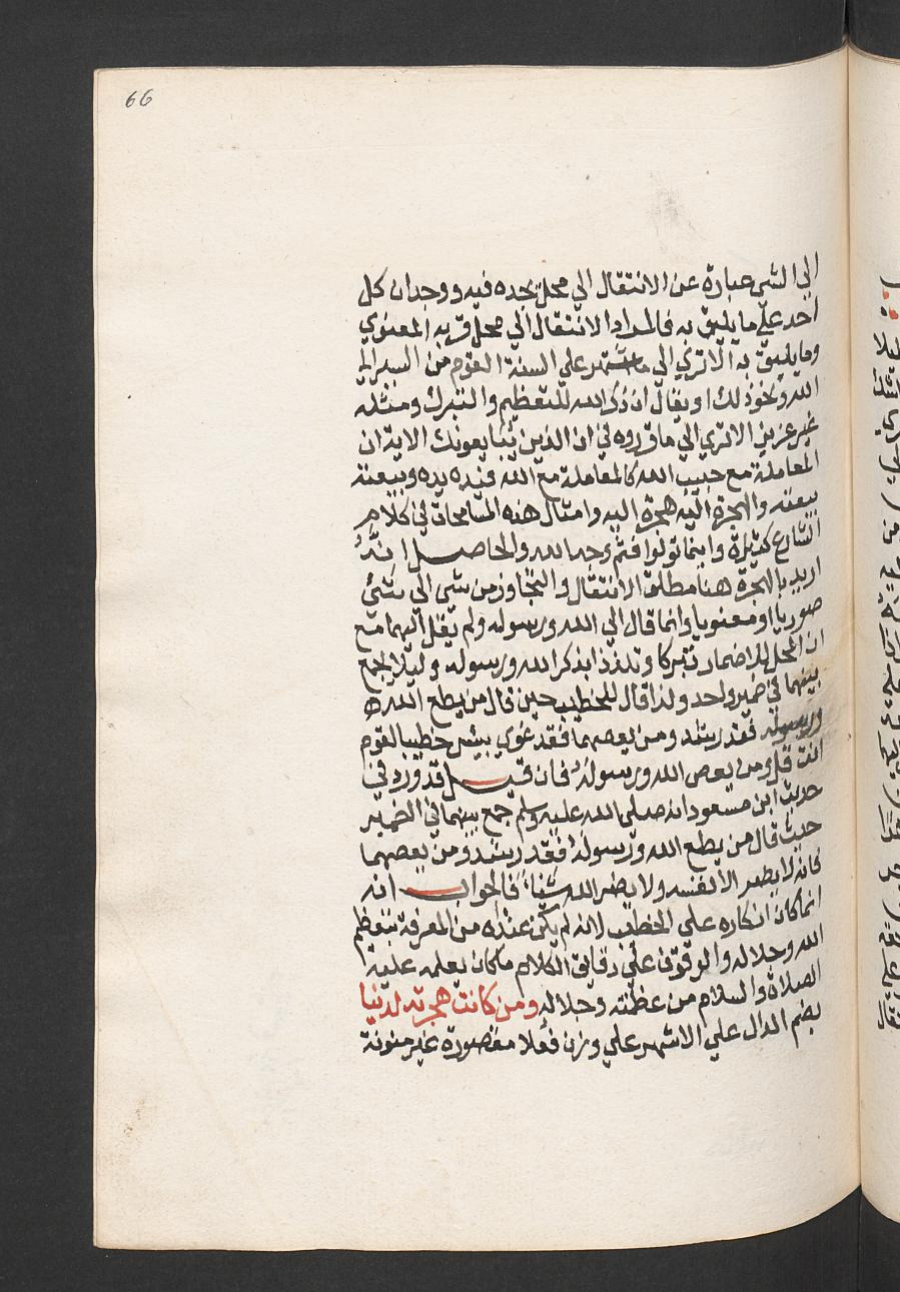 66
الي الشي عبارة عن الانتقال الي محل يجده فيه ووجدان كل
احد علي ما يليق به فالمراد الانتقال الي محل قربه المعنوي
وما يليق به الا تري الي ما اشتهر علي السنة القوم من السير الي
الله ونحو ذلك او يقال ان ذكر الله للتعظيم والتبرك ومثله
غير عزيز الا تري الي ما قرروه في ان الذين يبايعونك الاية ان
المعاملة مع حبيب الله كالمعاملة مع الله فيده يده وبيعته
بيعته والهجرة اليه هجرة اليه وامثال هذه المسامحات في كلام
الشارع كثيرة وايثما تولوا فثم وجه الله والحاصل انه
اريد بالهجرة هنا مطلق الانتقال والتجاوز من شي الي شئ
صوريا او معنويا وانما قال الي الله ورسوله ولم يقل اليهما مع
ان المحل للاضمار تبركا وتلذذا بذكر الله ورسوله وليلا يجمع
بينهما في ضمير واحد ولذا قال للخطيب حين قال من يطع الله
ورسوله فقد رشد ومن يعصهما فقد غوي بيس خطيب القوم
انت قل ومن يعص الله ورسوله فان قيل قد ورد في
حديث ابن مسعود انه صلي الله عليه وسلم جمع بينهما في الضمير
حيث قال من يطع الله ورسوله فقد رشد ومن يعصهما
فانه لا يضر الا نفسه ولا يضر الله شيا فالجواب انه
انما كان انكاره علي الخطيب لانه لم يكن عنده من المعرفة بتعظيم
الله وجلاله والوقوف علي دقايق الكلام ما كان يعلمه عليه
الصلاة والسلام من عظمته وجلاله ومن كانت هجرته لدنيا
بضم الدال علي الاشهر علي وزن فعلا مقصورة غير منونة